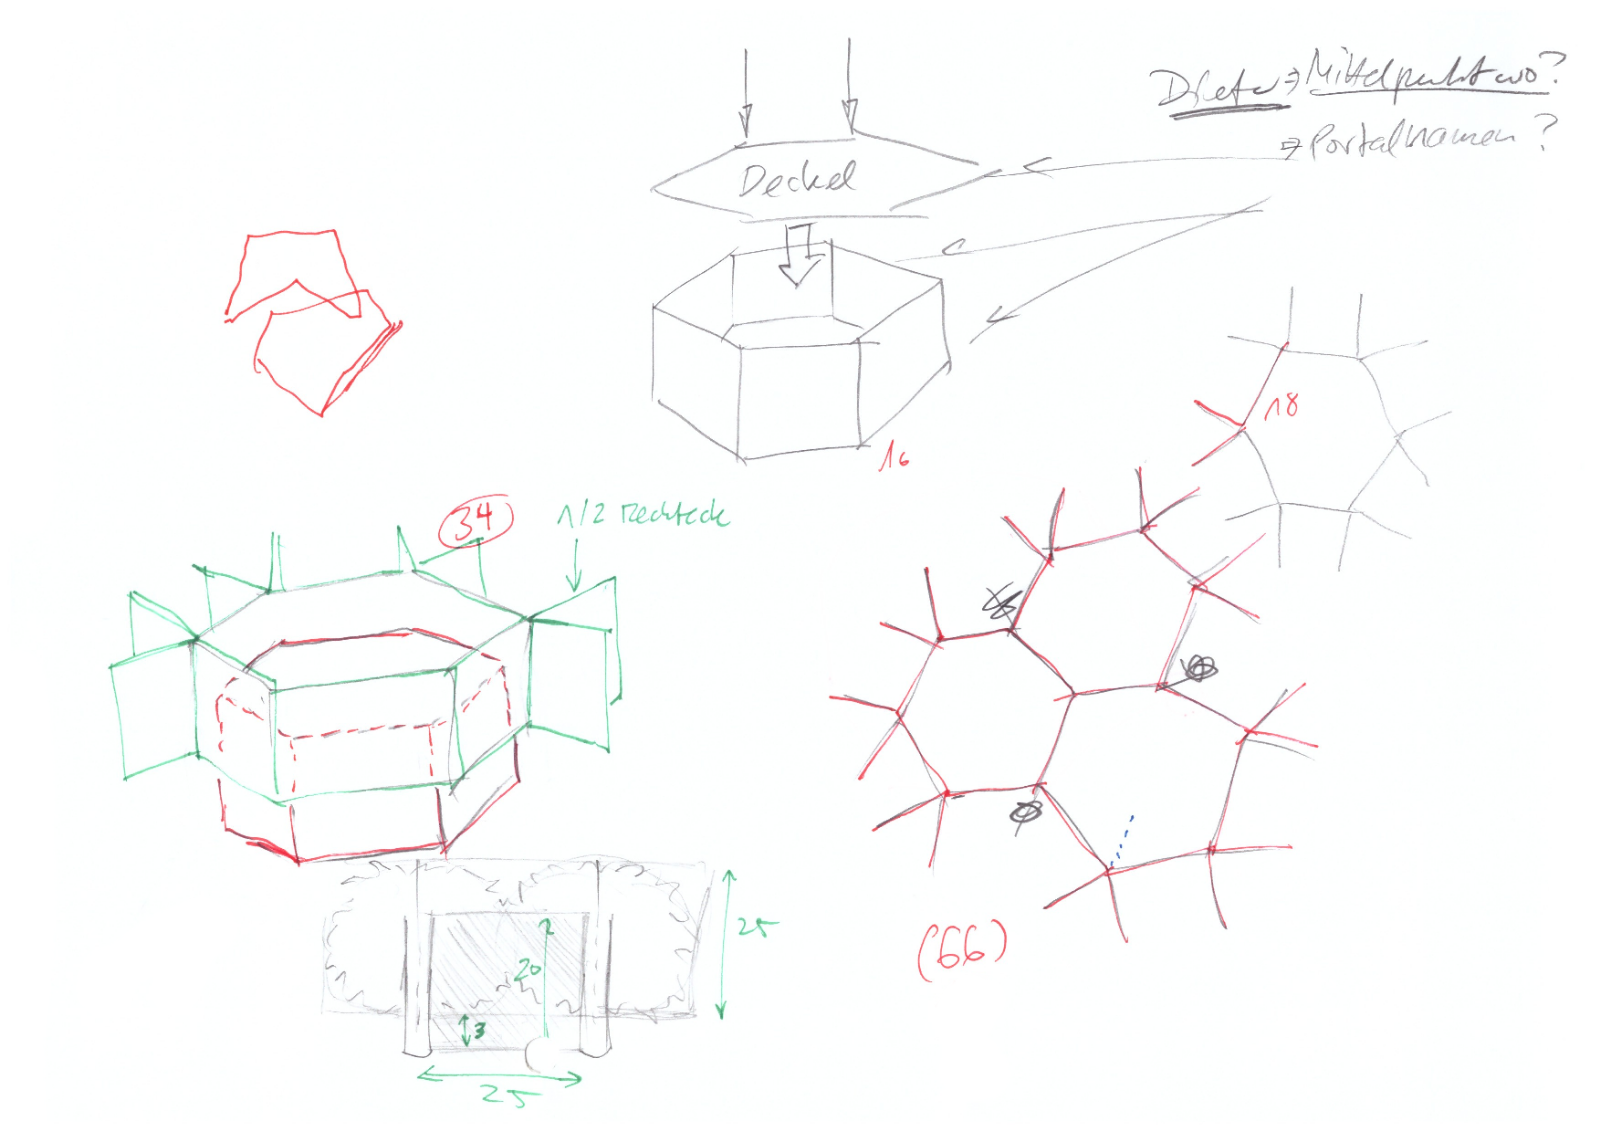 ⇒ Mittelpunkt wo?
⇒ Portalnamen?
Deckel
18
16
34
1/2 Rechteck
25
20
3
25
(66)